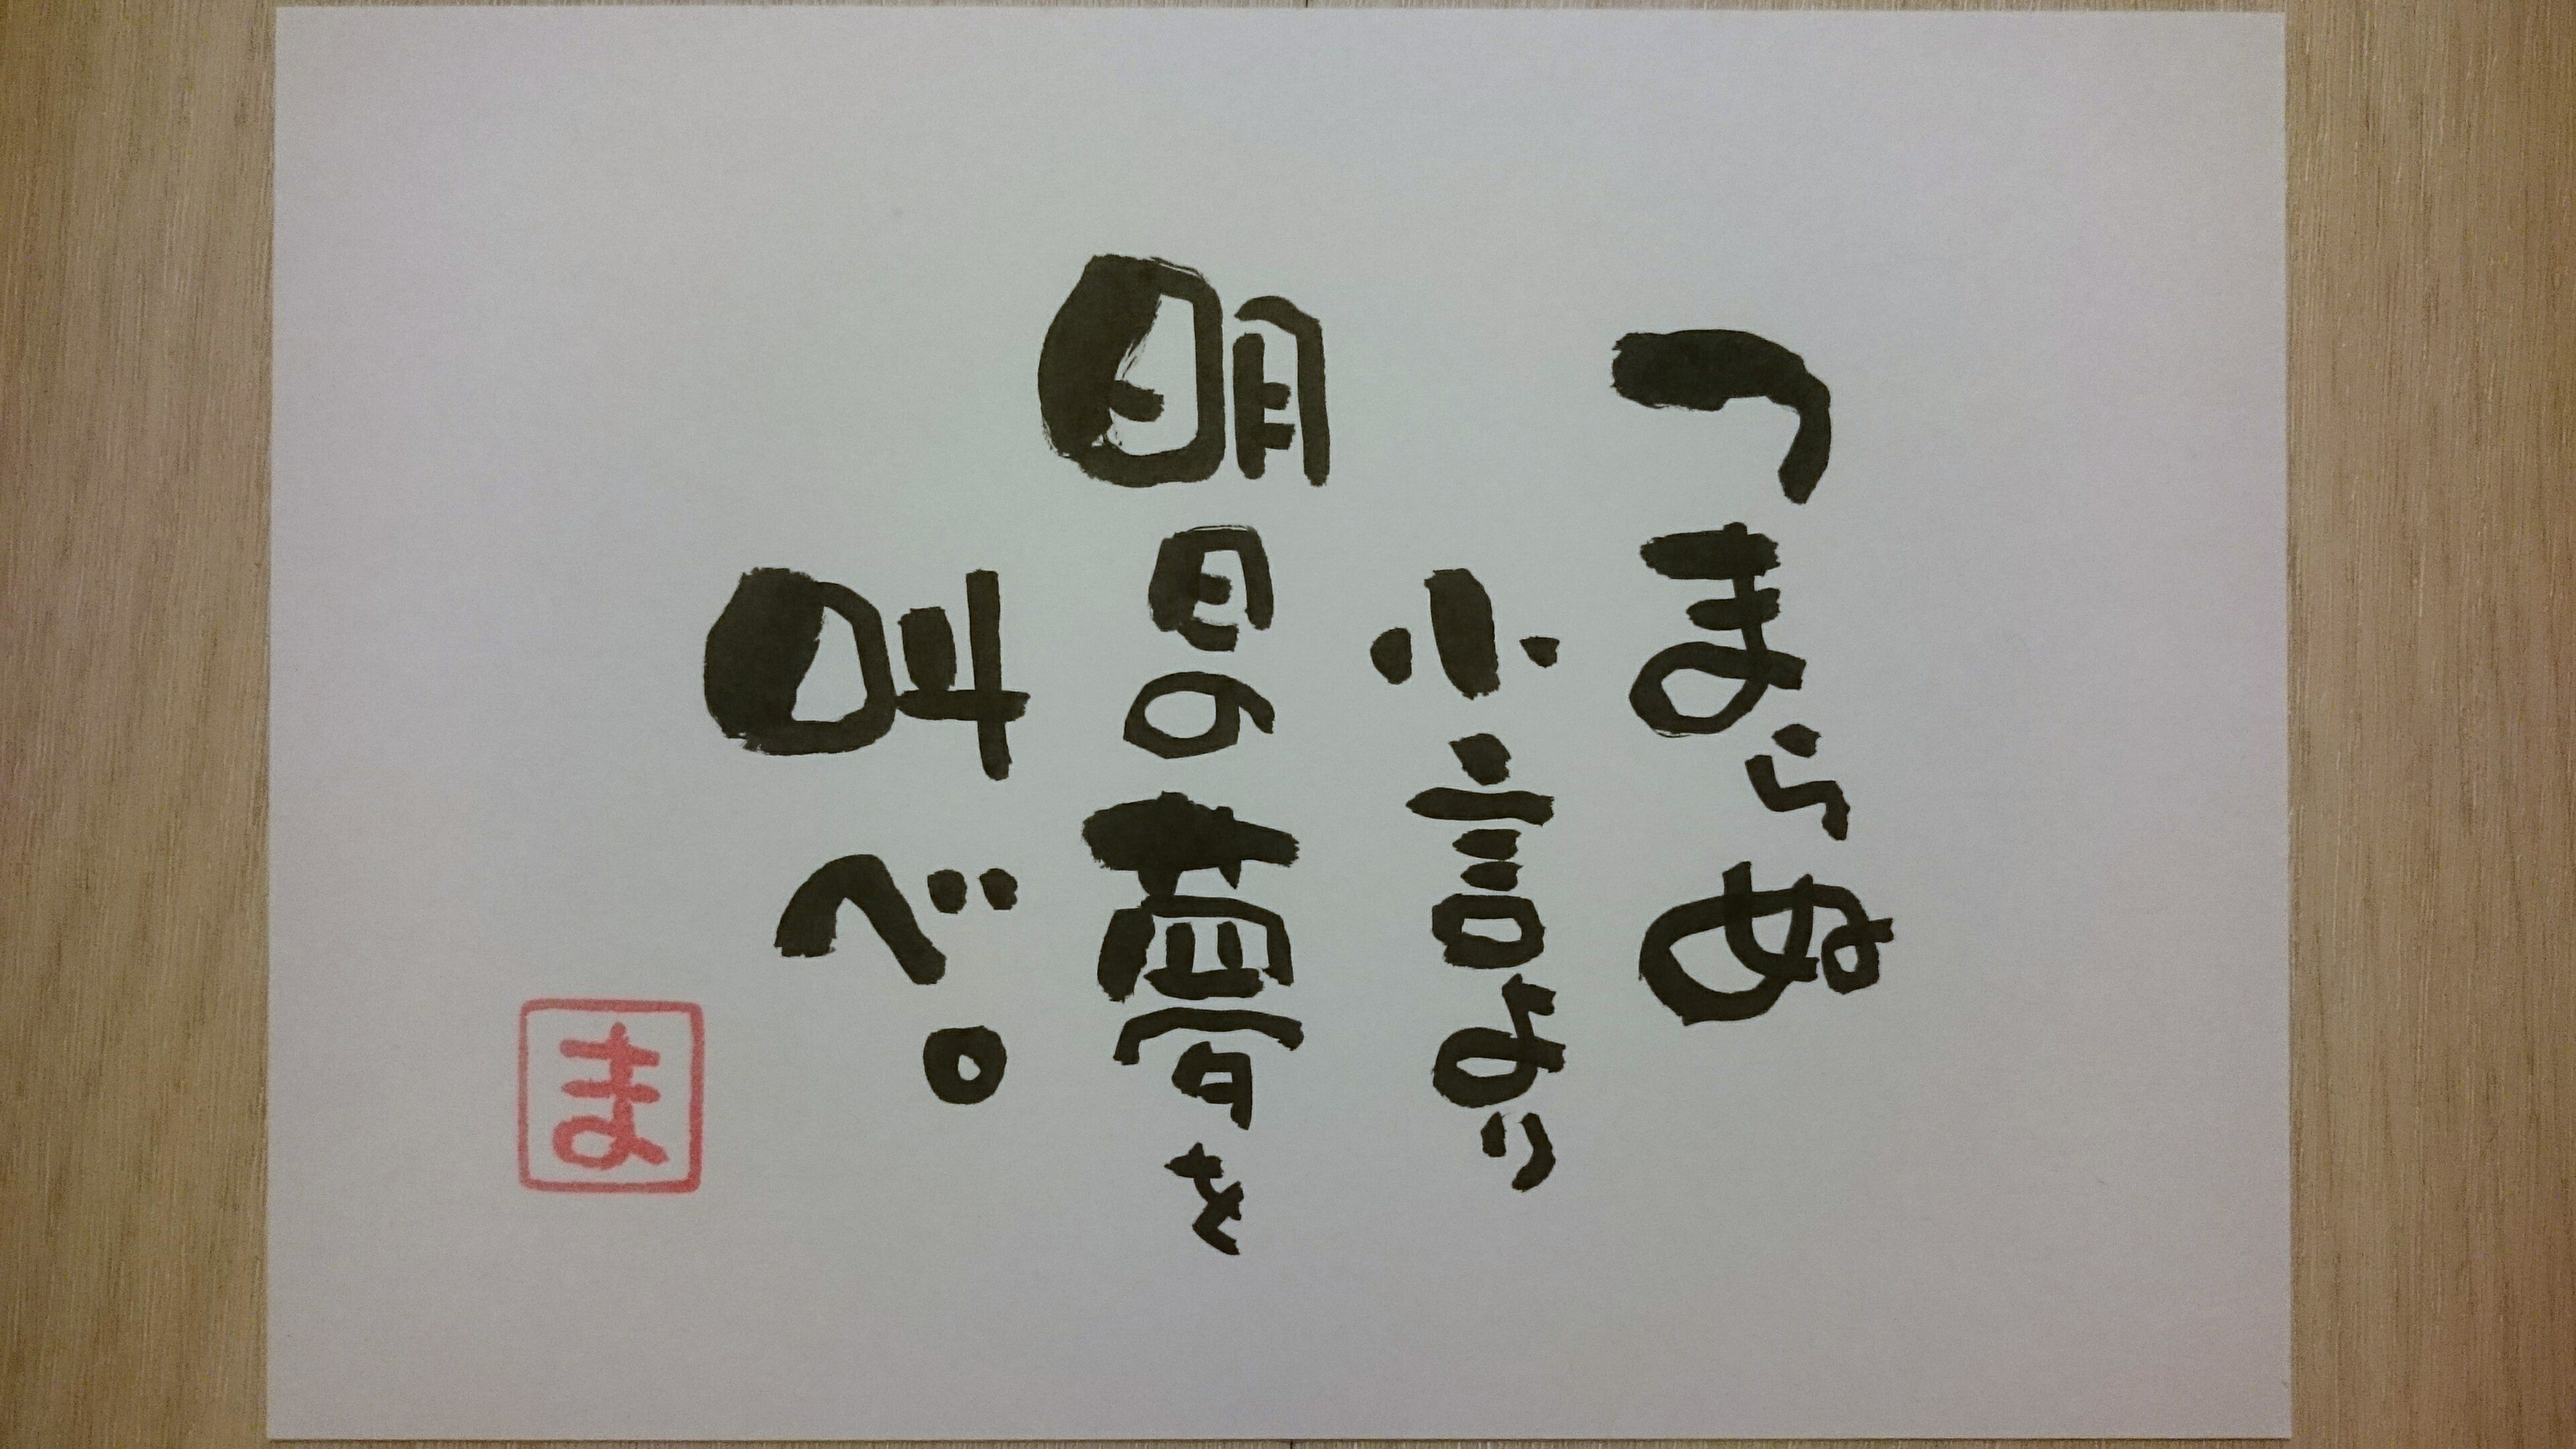 つまらぬ
小言より
明日の夢を
叫べ。
ま